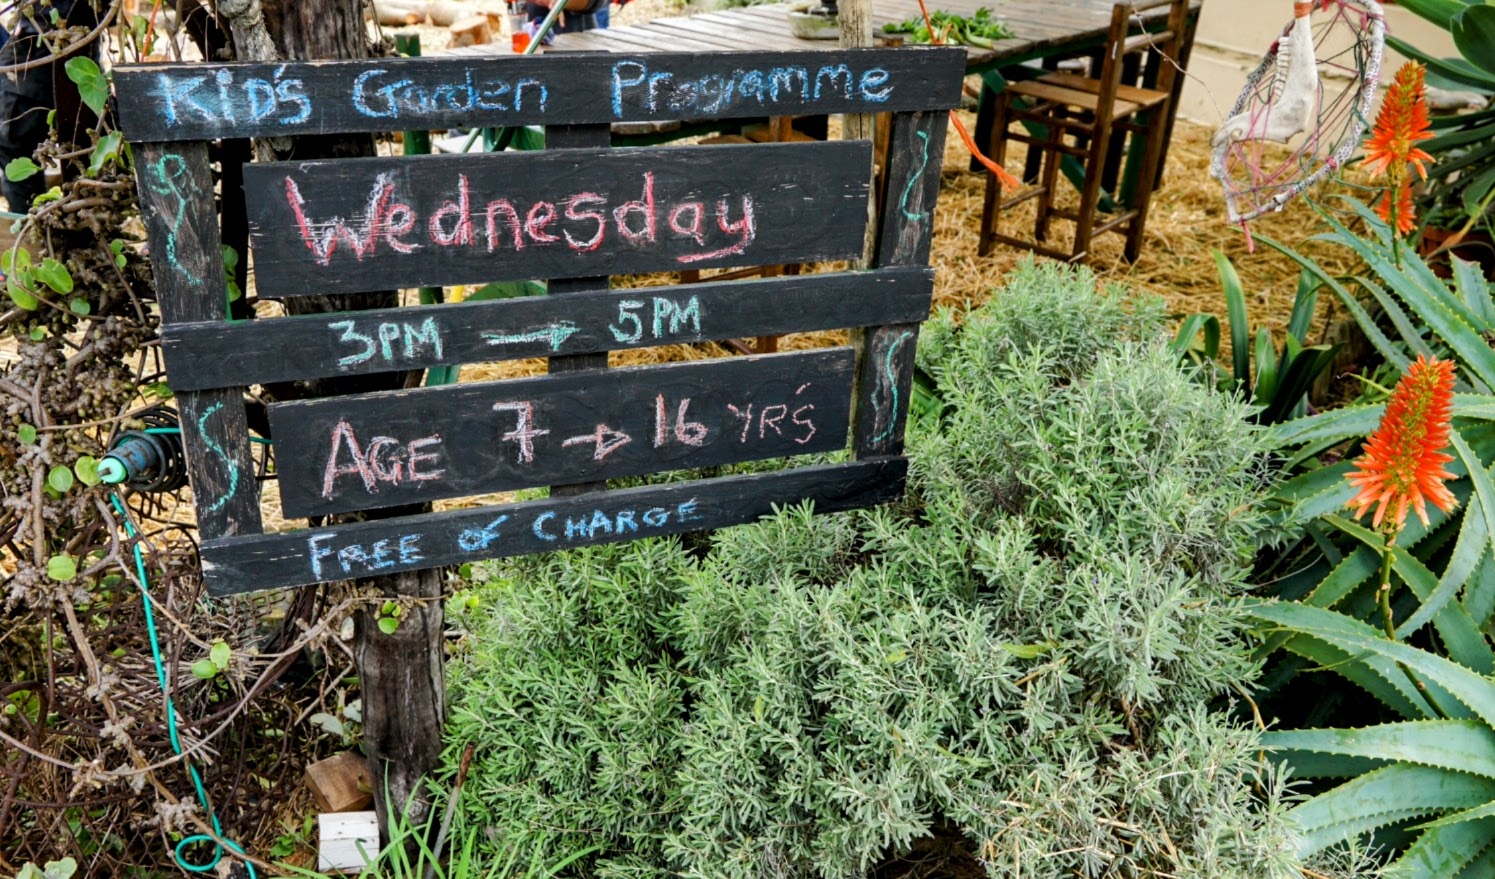 KiD'S Garden Programme
Wednesday
3PM → 5PM
AGE 7 → 16 YR'S
FREE OF CHARGE